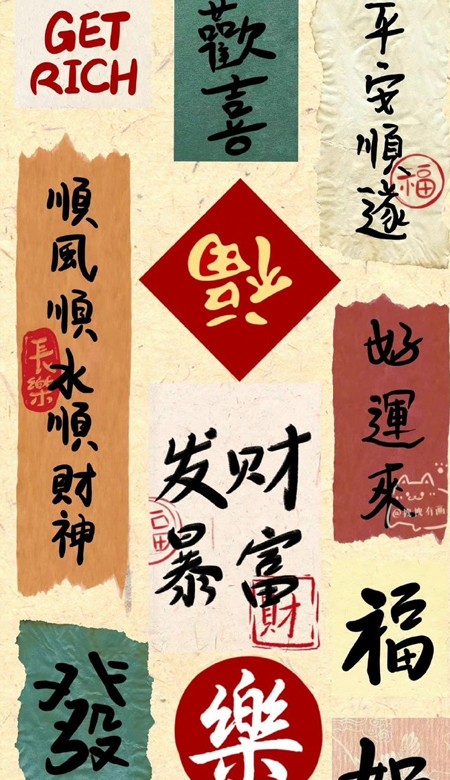 GET
RICH
歡喜
平安順遂
福
順風順水順財神
長樂
福
好運來
发财
暴富
財
福
發
樂